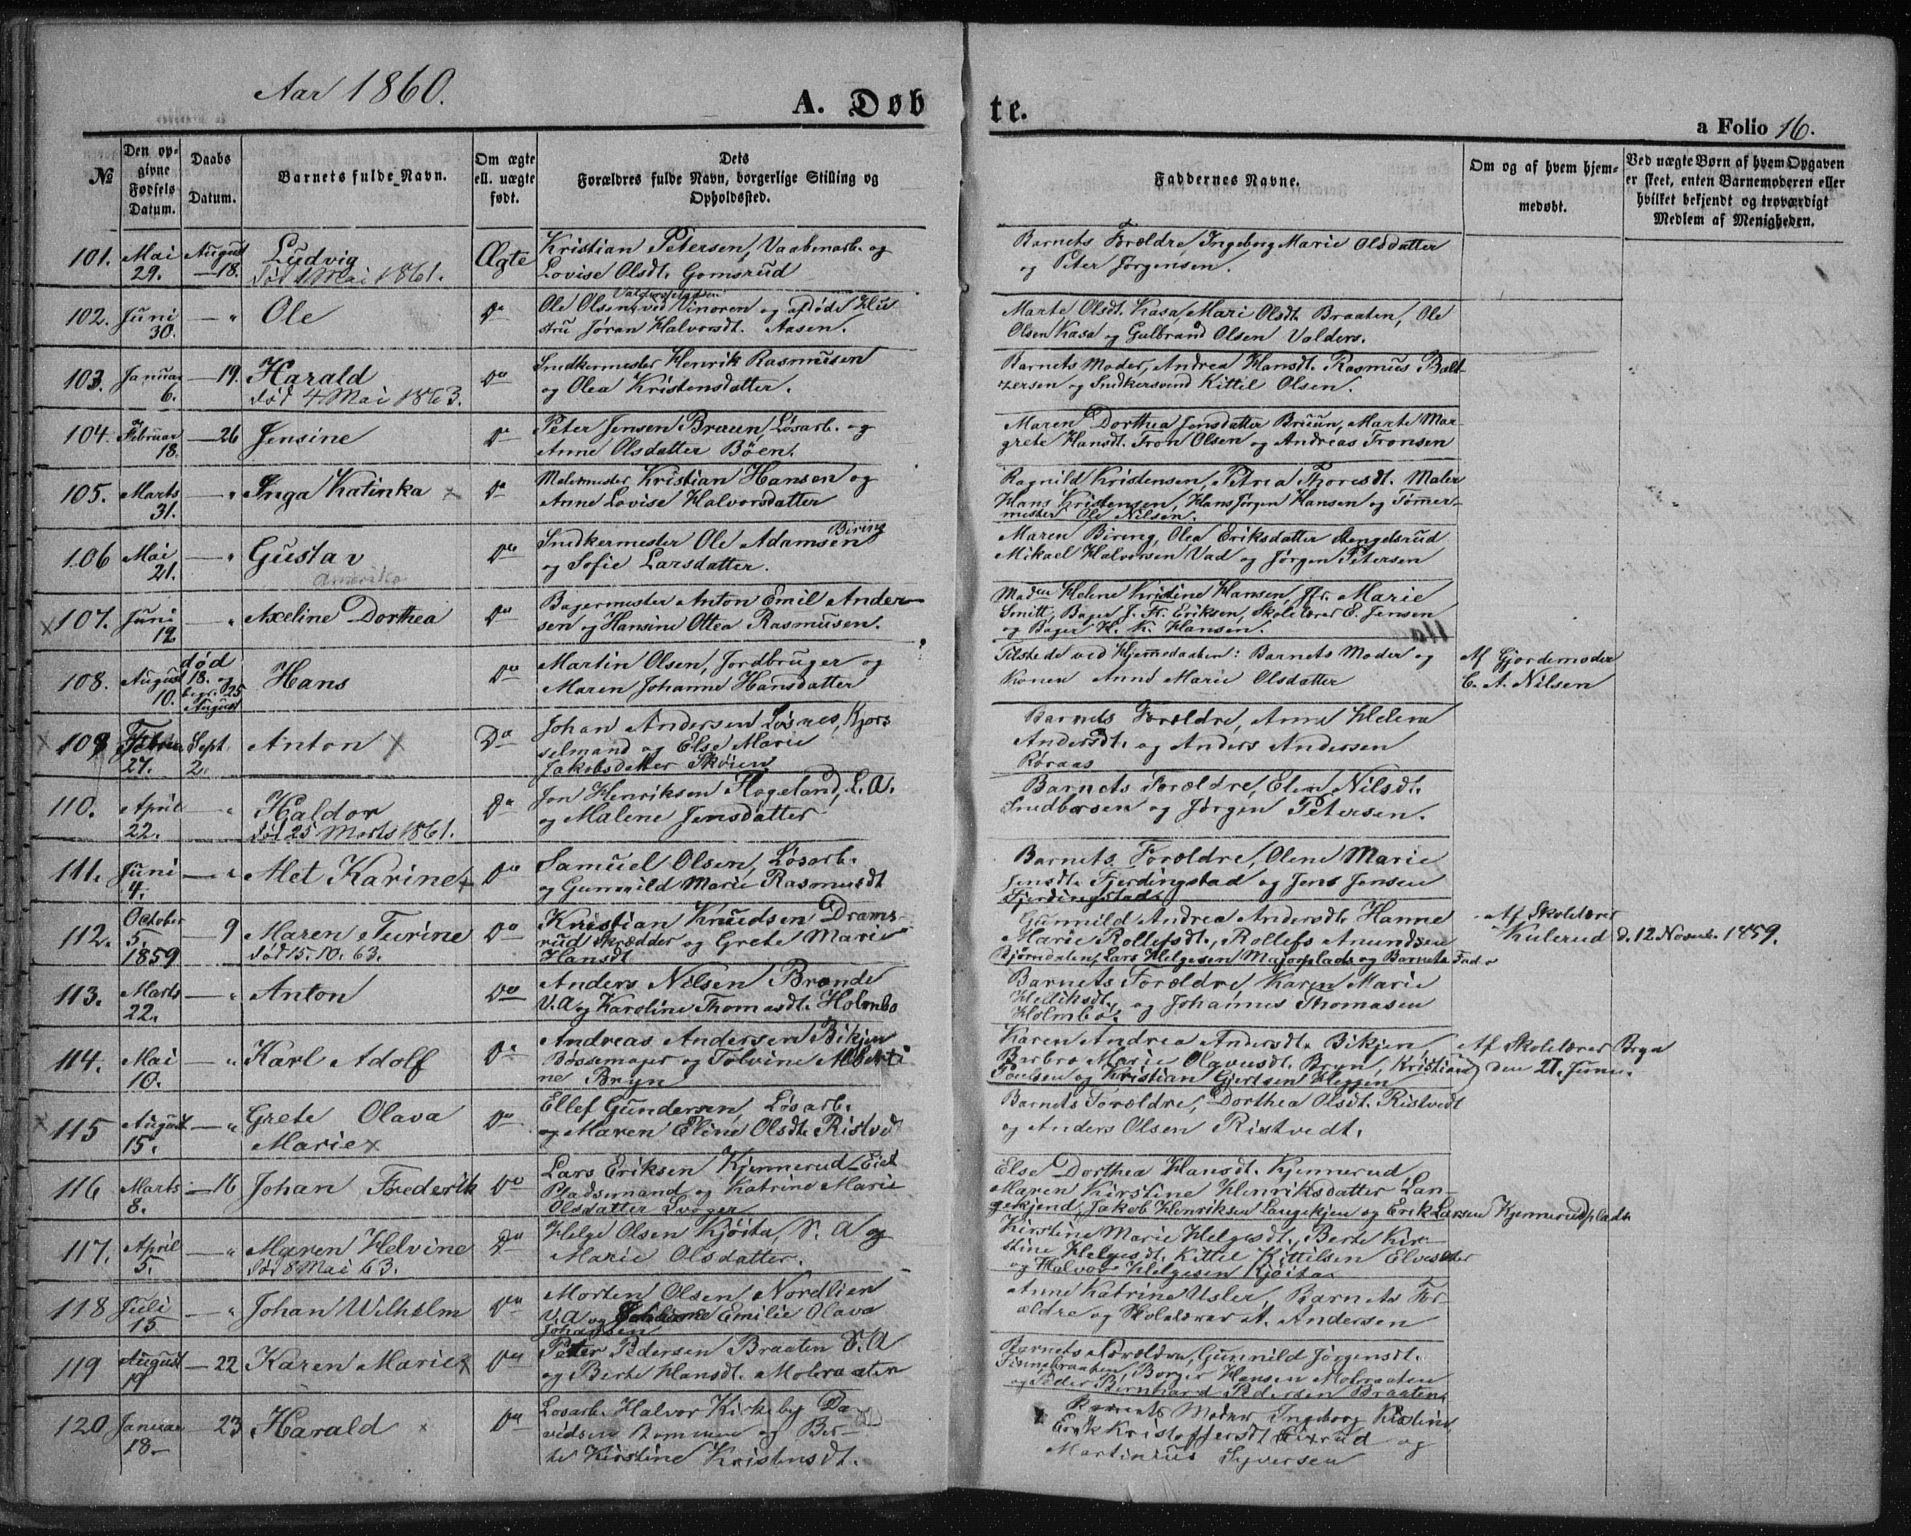 Aar 1860.
A. Døb
te.
a Folio 16.
No
Den op-
givne
Fødsels
Datum.
Daabs
Datum.
Barnets fulde Navn.
Om ægte
ell. uægte
født.
Dets
Forældres fulde Navn, borgerlige Stilling og
Opholdssted.
Faddernes Navne.
Om og af hvem hjem-
medøbt.
Ved uægte Børn af hvem Opgaven
er skeet, enten Barnemoderen eller
hvilket bekjendt og troværdigt
Medlem af Menigheden.
101. Mai 29. August 18. Ludvig Ægte Kristian Petersen, Vaabenarb. og
død 1 Mai 1861. Lovise Olsdt. Gomsrud
Barnets Forældre, Ingeborg Marie Olsdatter
og Peter Jørgensen.
102. Juni 30. — " Ole Do Ole Olsen Valdersplassen ved Vinoren og afdøde Hu
stru Jøran Halvorsdt. Aasen.
Marte Olsdt. Kasa, Mari Olsdt. Braaten, Ole
Olsen Kasa og Gulbrand Olsen Valders.
103. Januar 6. — 19. Harald Do Snedkermester Henrik Rasmusen
død 4 Mai 1863. og Olea Kristensdatter.
Barnets Moder, Andrea Hansdt. Rasmus Balt
zersen og Snedkersvend Kittil Olsen.
104. Februar 18. — 26 Jensine Do Peter Jensen Bruun, Løsarb. og
Anne Olsdatter Böen.
Maren Dorthea Jensdatter Bruun, Marte Mar-
grete Hansdt. Tron Olsen og Andreas Tronsen
105. Marts 31. — " Inga Katinka x Do Malermester Kristian Hansen og
Anne Lovise Halvorsdatter
Ragnild Kristensen, Petrea Thoresdt. Maler
Hans Kristensen, Hans Jørgen Hansen og Tømmer-
mester Ole Nilsen.
106 Mai 21. — " Gustav Do Snedkermester Ole Adamsen Biring
og Sofie Larsdatter.
Maren Biring, Olea Eriksdatter Stengelsrud
Mikael Halvorsen Vad og Jørgen Petersen
x 107. Juni 12. — " Axeline Dorthea Do Bagermester Anton Emil Ander-
sen og Hansine Ottea Rasmusen.
Maden Helene Kristine Hansen, Fr. Marie
Smitt, Bager J. Fr. Eriksen, Skolelærer E. Jensen
og Bager H. K. Hansen.
108. August 10. død 18. og begr. 25 August Hans Do Martin Olsen, Jordbruger og
Maren Johanne Hansdatter
Tilstede ved Hjemmedaaben: Barnets Moder og
Konen Anne Marie Olsdatter
Af Gjordemoder
C. A. Nilsen
x 109 Febru 27. Sept. 2. Anton x Do Johan Andersen Løsnes, Kjørs
selmand og Else Marie
Jakobsdatter Skøien
Barnets Forældre, Anne Helene
Andersdt. og Anders Andersen
Røraas
110. April 22. — " Haldor Do Jon Henriksen Hogeland, L. A.
død 25 Marts 1861. og Malene Jensdatter
Barnets Forældre, Elen Nilsdt.
Snedkersen og Jørgen Petersen.
111. Juni 4. — " Met Karine x Do Samuel Olsen, Løsarb.
og Gunnild Marie Rasmusdt
Barnets Forældre, Olene Marie
Jensdt. Fjerdingstad og Jens Jensen
Fjerdingstad.
112. October 5. 1859 — 9 Maren Turine Do Kristian Knudsen Drams-
død 15.10.63. rud Skrædder og Grete Marie
Hansdt
Gunnild Andrea Andersdt. Hanne
Marie Rollefsdt., Rollefs Amundsen
Bjørndalen, Lars Helgesen Majorplads og Barnets Fader
Af Skolelærer
Kulerud d. 12 Novemb. 1859.
113. Marts 22. — " Anton Do Anders Nilsen Brænde
V. A og Karoline Thomasdt. Holmbo
Barnets Forældre, Karen Marie
Hedeiksdt. og Johannes Thomasen
Holmbo.
114. Mai 10. — " Karl Adolf Do Andreas Andersen Bikjen
Bøssemager og Tolvine Alberti
ne Bryn
Karen Andrea Andersdt. Bikjen
Barbro Marie Olavusdt. Bryn, Kristian
Poulsen og Kristian Gjertsen Heggen
Af Skolelærer Bryn
den 27. Juni.
x 115 August 15. — " Grete Olava Do Ellef Gundersen, Løsarb.
Marie x og Maren Eline Olsdt. Ristvedt
Barnets Forældre, Dorthea Olsdt. Ristvedt
og Anders Olsen Ristvedt.
116 Marts 8. — 16 Johan Frederik Do Lars Eriksen Kjennerud Eiet
Pladsemand og Katrine Marie
Olsdatter Svøger
Else Dorthea Hansdt. Kjennerud
Maren Kirstine Henriksdatter Lan-
gekjend, Jakob Henriksen Langekjen og Erik Larsen Kjennerudplads
117. April 5. — " Maren Helvine Do Helge Olsen Kjöita, S. A og
død 8 Mai 63. Marie Olsdatter.
Kirstine Marie Helgesdt., Berte Kir-
stine Helgesdt. Kittil Kittilsen Elvesæter
og Halvor Helgesen Kjöita
118 Juli 15 — " Johan Wilhelm Do Morten Olsen Nordlien
V. A og Emilie Olava
Johansen
Anne Katrine Usler, Barnets For-
ældre og Skolelærer A. Andersen
119 August 19 — 22 Karen Marie x Do Peter Pedersen Braaten S. A
og Berte Hansdt. Mobraaten
Barnets Forældre, Gunnild Jørgensdt.
Finnebraaten, Borger Hansen Mobraaten
og Peder Bernhard Pedersen Braaten
120 Januar 18. — 23 Harald x Do Løsarb. Halvor Kirkeby Da
vidsen Bommen og Ber-
te Kirstine Kristensdt.
Barnets Moder Ingeborg Kirstine
Erik Kristoffersdt og
Martinius Syversen